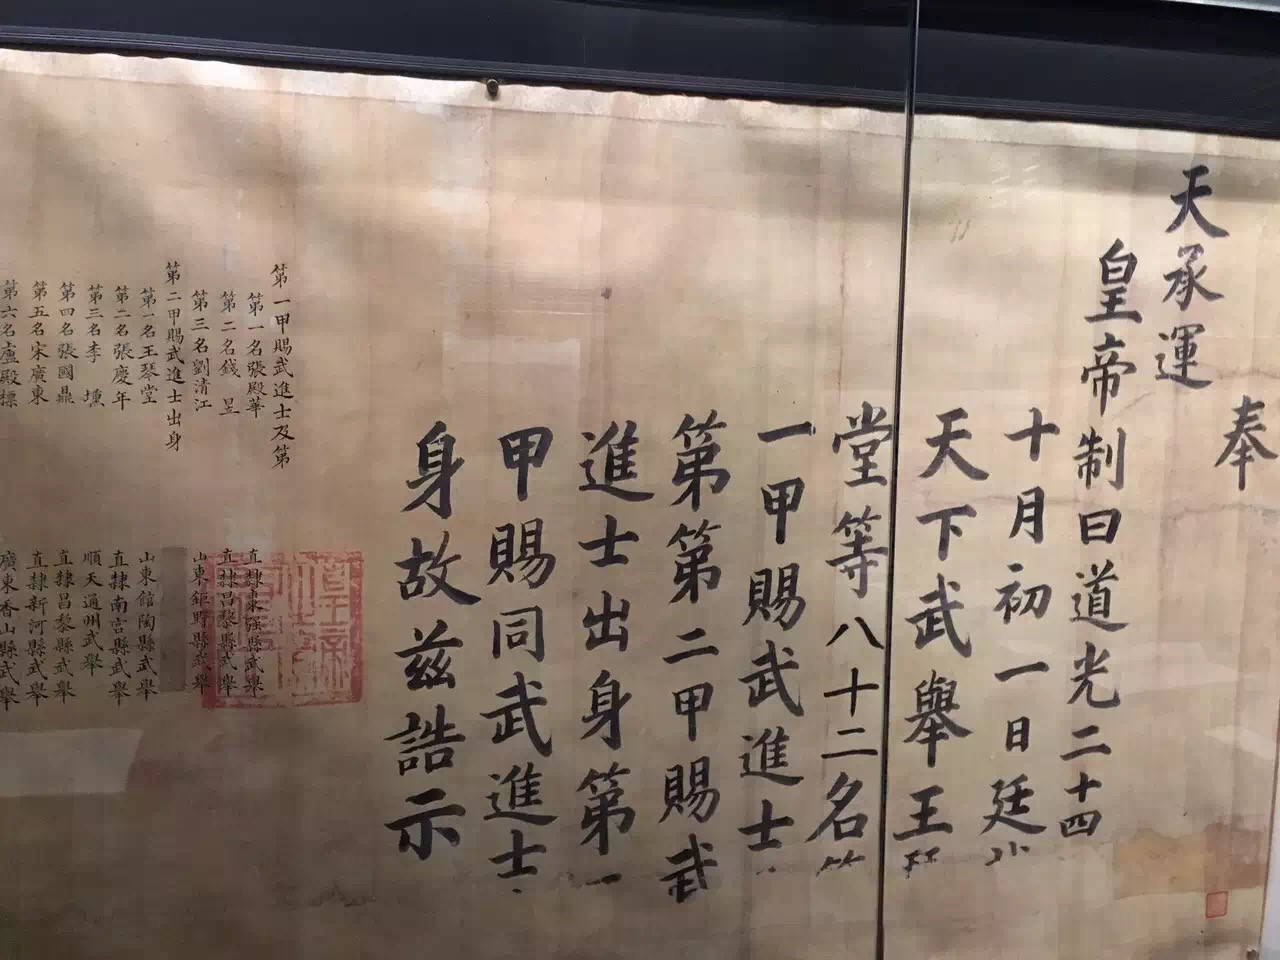 奉
天承運
皇帝制曰道光二十四
十月初一日廷
天下武舉王
堂等八十二名
一甲賜武進士
第第二甲賜武
進士出身第
甲賜同武進士
身故兹誥示
第一甲賜武進士及第
第一名張殿華 直隸棗强縣武舉
第二名錢昱 直隸昌黎縣武舉
第三名劉清江 山東鉅野縣武舉
第二甲賜武進士出身
第一名王琴堂 山東館陶縣武舉
第二名張慶年 直隸南宮縣武舉
第三名李壎 順天通州武舉
第四名張國鼎 直隸昌黎縣武舉
第五名宋廣東 直隸新河縣武舉
第六名盧殿標 廣東香山縣武舉